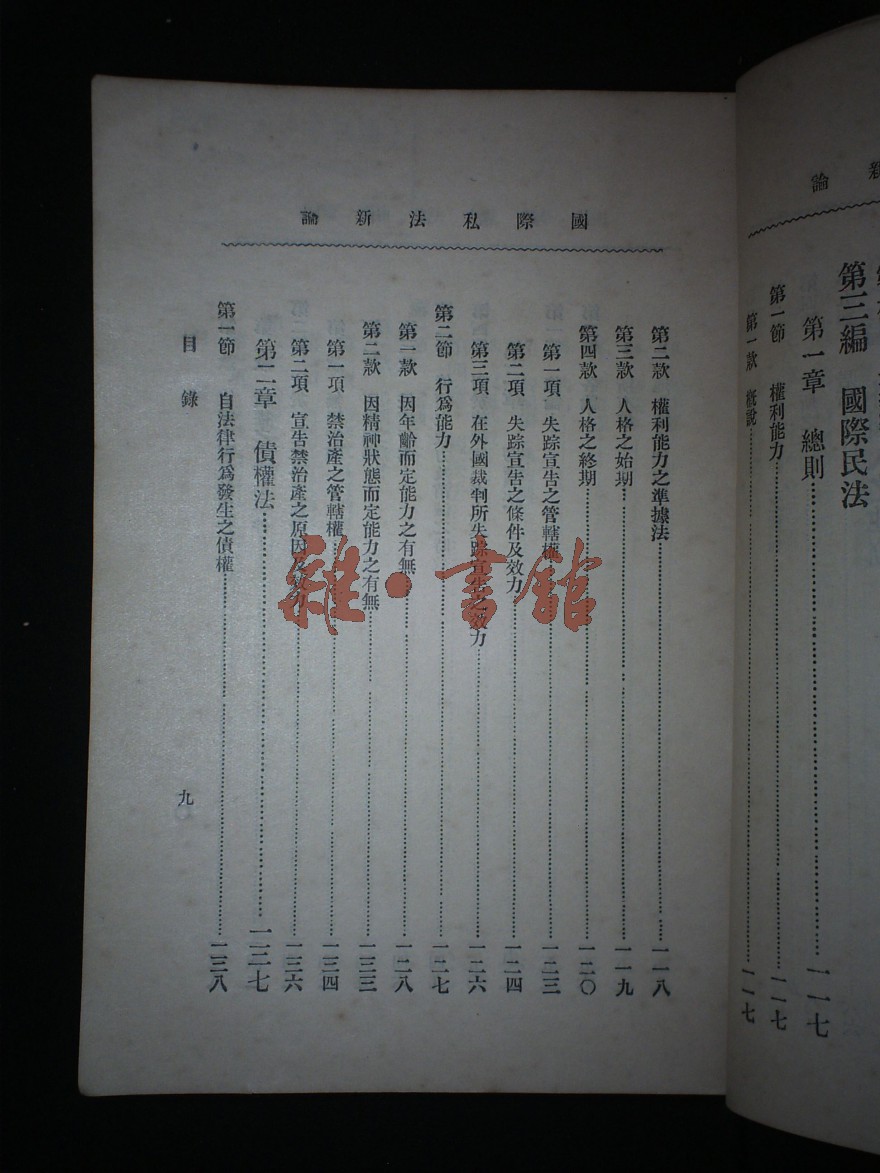 新論
第三編　國際民法
第一章　總則……一一七
第一節　權利能力……一一七
第一款　概說……一一七
國際私法新論
第二款　權利能力之準據法……一一八
第三款　人格之始期……一一九
第四款　人格之終期……一二〇
第一項　失踪宣告之管轄權……一二三
第二項　失踪宣告之條件及效力……一二四
第三項　在外國裁判所失踪宣告之效力……一二六
第二節　行爲能力……一二七
第一款　因年齡而定能力之有無……一二八
第二款　因精神狀態而定能力之有無……一三三
第一項　禁治產之管轄權……一三四
第二項　宣告禁治產之原因及效力……一三六
第二章　債權法……一二七
第一節　自法律行爲發生之債權……一三八
目錄
九
雜·書館